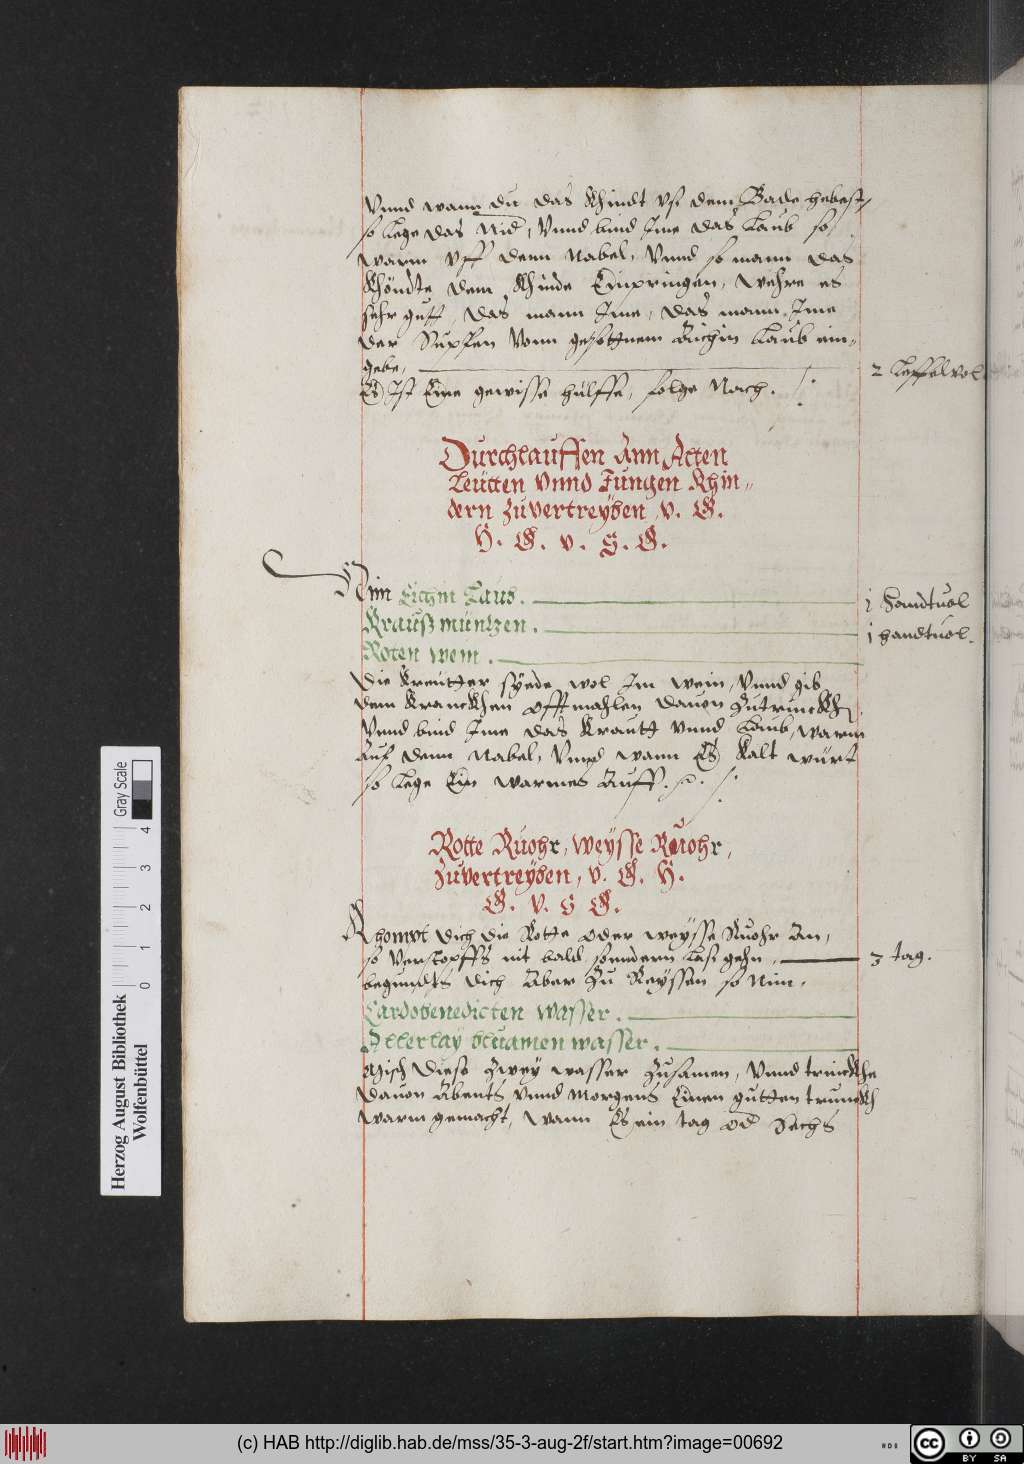 Vnnd wann du das Khindt vß dem Bade hebest,
so lege das Nid, Vnnd bind Ime das Laub so
warm vff denn Nabel, Vnnd so mann das
Khöndte dem Khinde Einpringen, wehre es
sehr gutt, das mann Ime, das mann Ime
der Supfen Vonn gesottnem Aichin Laub ein-
gebe, 2 Leffelvol
Es Ist Eine gewisse hülffe, folge Nach.
Durchlauffen Ann Alten
Leütten Vnnd Jungen Khin-
dern Zuvertreyben, v. G.
H. G. v. S. G.
Nim Eichin Laub. 1 Handtuol
Kraußmüntzen. 1 handtuol.
Roten wein.
Die Kreutter syede wol Im wein, Vnnd gib
dem Kranckhen offtmahlen dauon Zutrinckhen,
Vnnd bind Ime das Krautt vnnd Laub, warm
Auf denn Nabel, Vnnd wann Es Kalt würt
so lege Ein warmes Auff.
Rotte Ruohr, weysse Ruohr,
Zuvertreyben, v. G. H.
G. v. S G.
Khompt dich die Rotte oder weysse Ruohr An,
so Verstopffs nit bald sonndern Laß gehn, 3 tag.
begundts dich Aber Zu Reyssen so Nim,
Cardobenedicten wasser.
Allerlay bluamen wasser.
Misch diese Zwey wasser Zusamen, Vnnd trinckhe
dauon Abents vnnd Morgens Einen gutten trunckh
warm gemacht, wann Es ein tag od Sechs
Gray Scale
0 1 2 3 4
Herzog August Bibliothek
Wolfenbüttel
(c) HAB http://diglib.hab.de/mss/35-3-aug-2f/start.htm?image=00692
cc BY SA